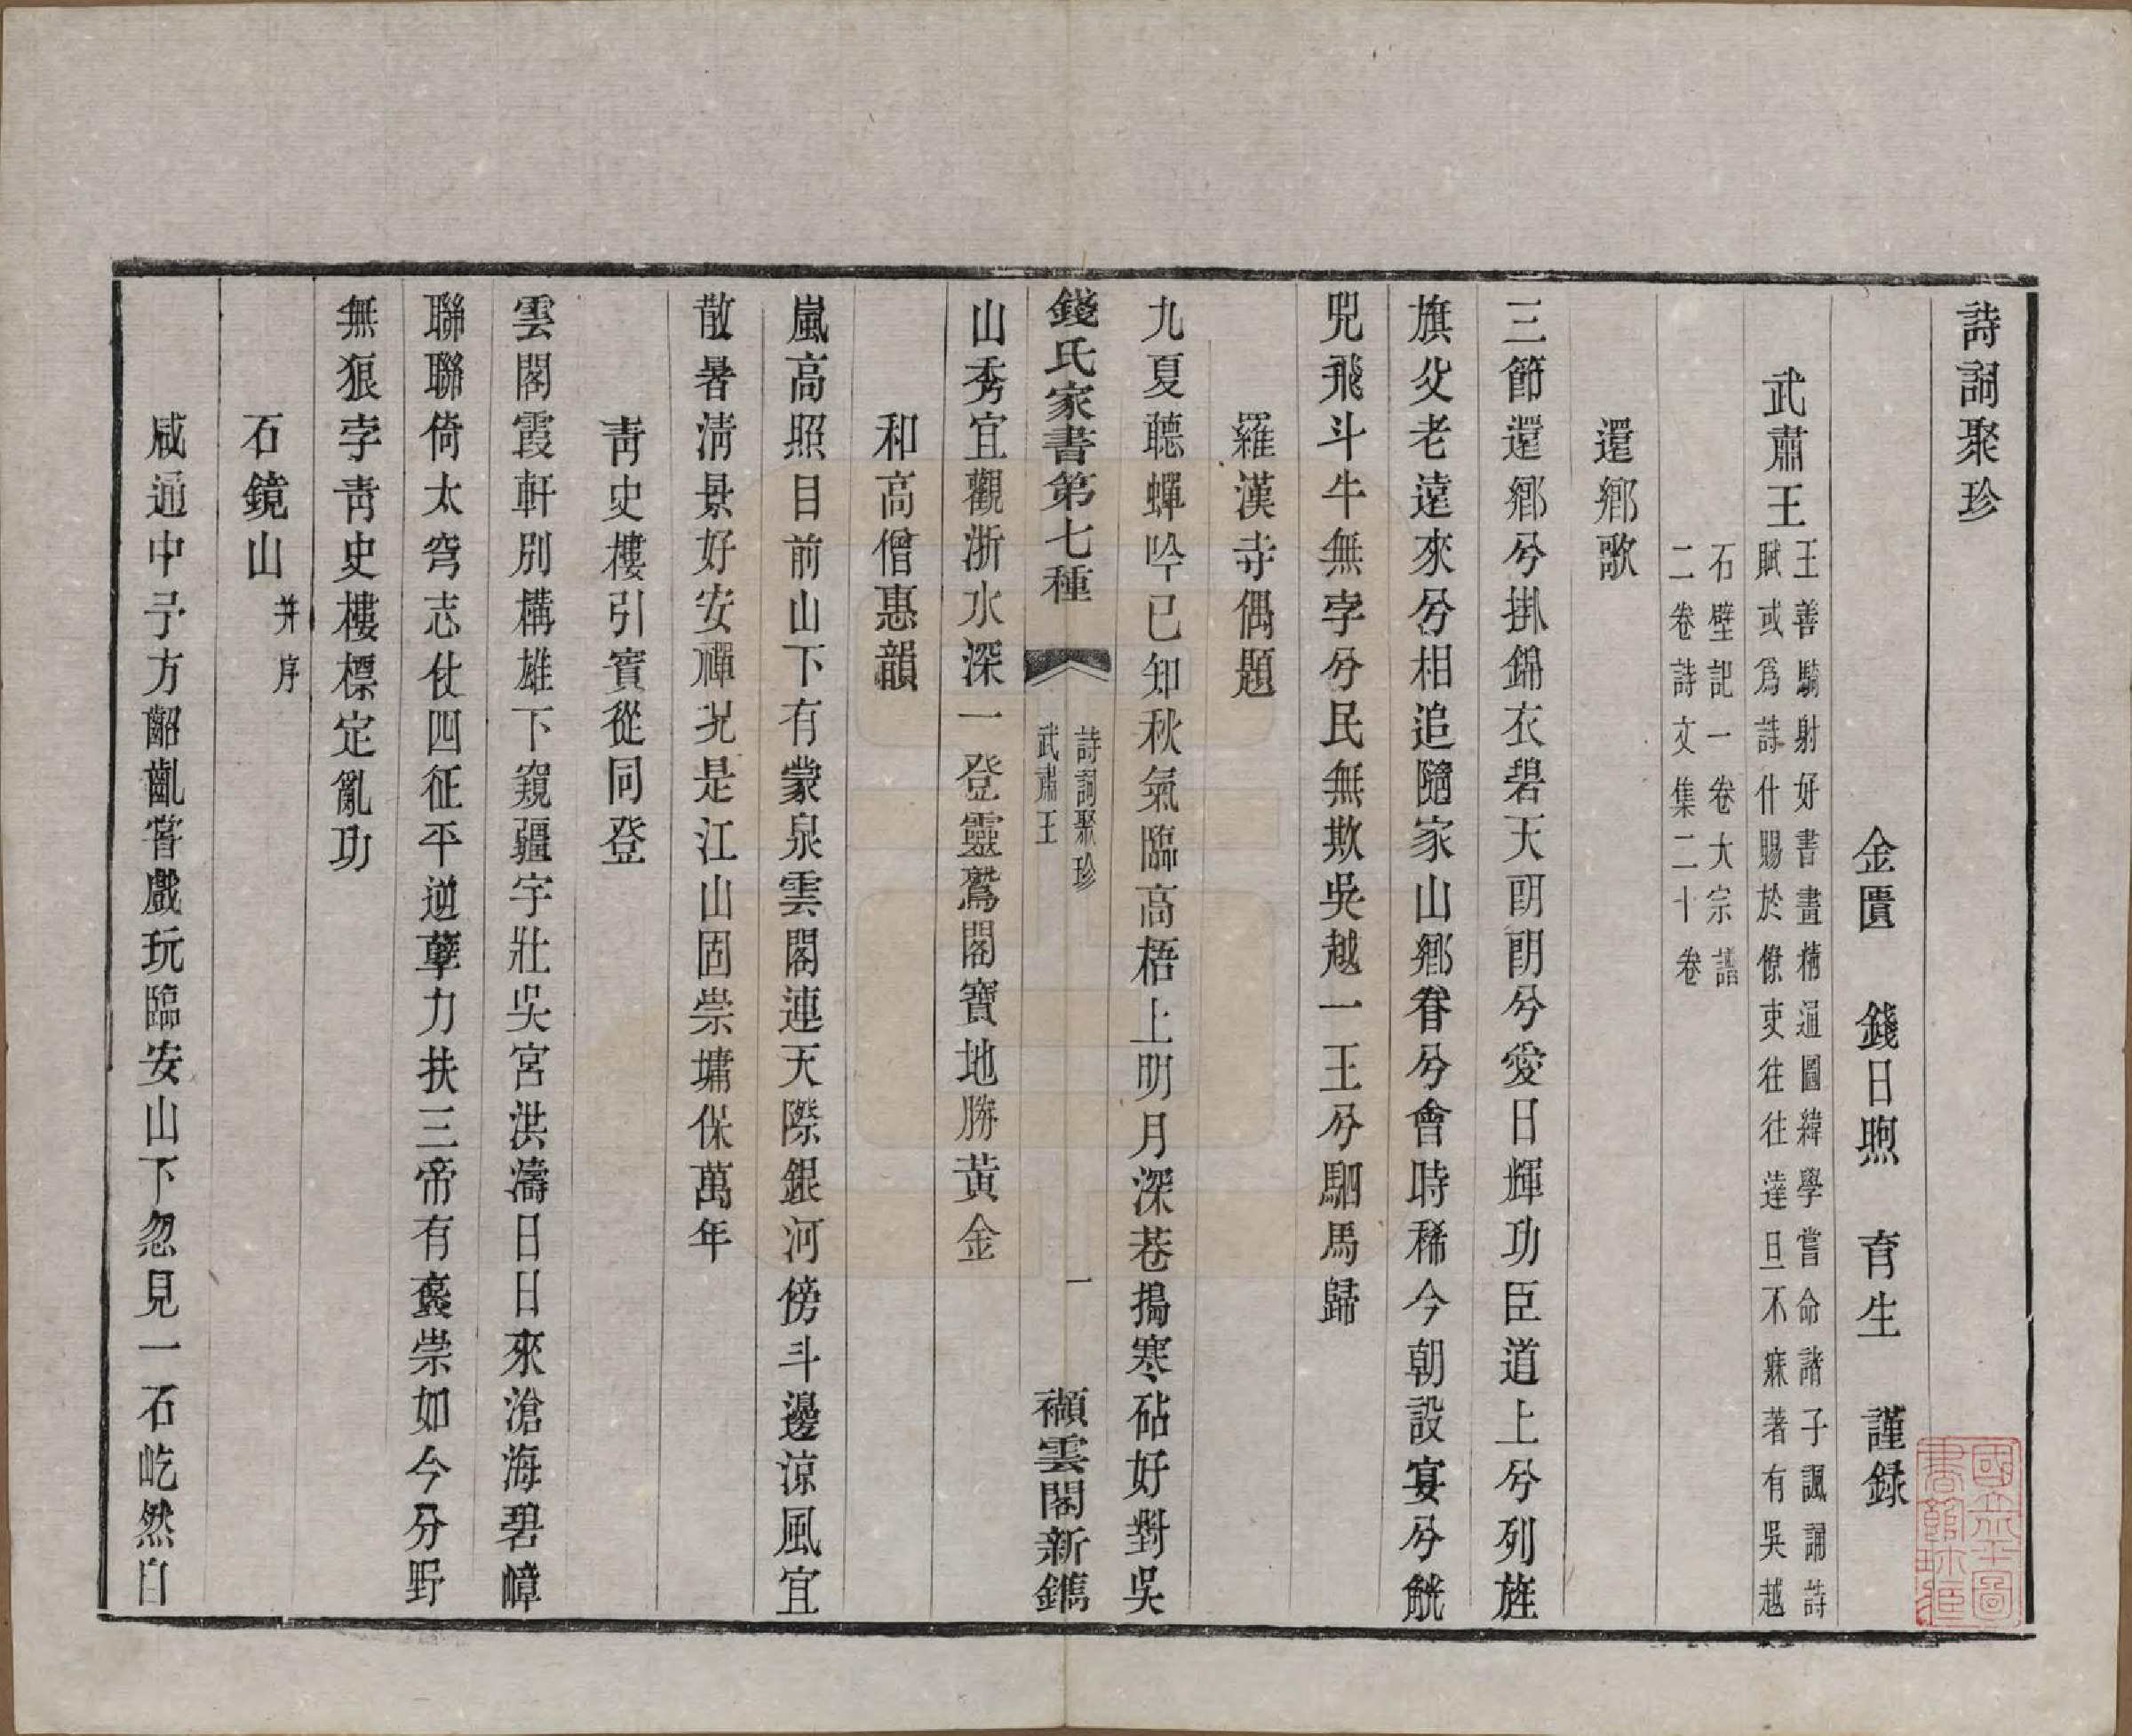 詩詞聚珍
金匱　錢日煦　育生　謹録
武肅王
王善騎射好書畫精通圖緯學嘗命諸子諷誦詩
賦或爲詩什賜於僚吏往往達旦不寐著有吳越
石壁記一卷大宗譜
二卷詩文集二十卷
還鄉歌
三節還鄉兮掛錦衣碧天朗朗兮愛日輝功臣道上兮列旌
旗父老遠來兮相追隨家山鄉眷兮會時稀今朝設宴兮觥
兕飛斗牛無孛兮民無欺吳越一王兮駟馬歸
羅漢寺偶題
九夏聽蟬吟已知秋氣臨高梧上明月深巷搗寒砧好對吳
錢氏家書第七種
詩詞聚珍
武肅王
一
襭雲閣新鐫
山秀宜觀浙水深一登靈鷲閣寶地勝黃金
和高僧惠韻
嵐高照目前山下有蒙泉雲閣連天際銀河傍斗邊涼風宜
散暑淸景好安禪況是江山固崇墉保萬年
靑史樓引賓從同登
雲閣霞軒別構雄下窺疆宇壯吳宮洪濤日日來滄海碧嶂
聯聯倚太穹志仗四征平逆孽力扶三帝有褒崇如今分野
無狼孛靑史樓標定亂功
石鏡山
并序
咸通中予方齠齔嘗戲玩臨安山下忽見一石屹然自
國立北平圖書館收藏